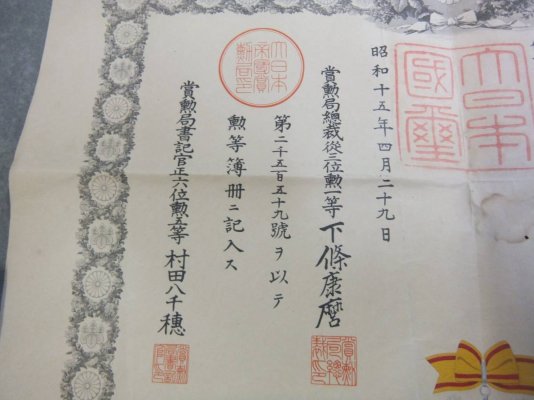 大日本
國璽
昭和十五年四月二十九日
賞勲局總裁從三位勲一等下條康麿
第二十五百五十九號ヲ以テ
勲等簿冊ニ記入ス
賞勲局書記官正六位勲五等村田八千穗
大日本
帝國賞
勲局印